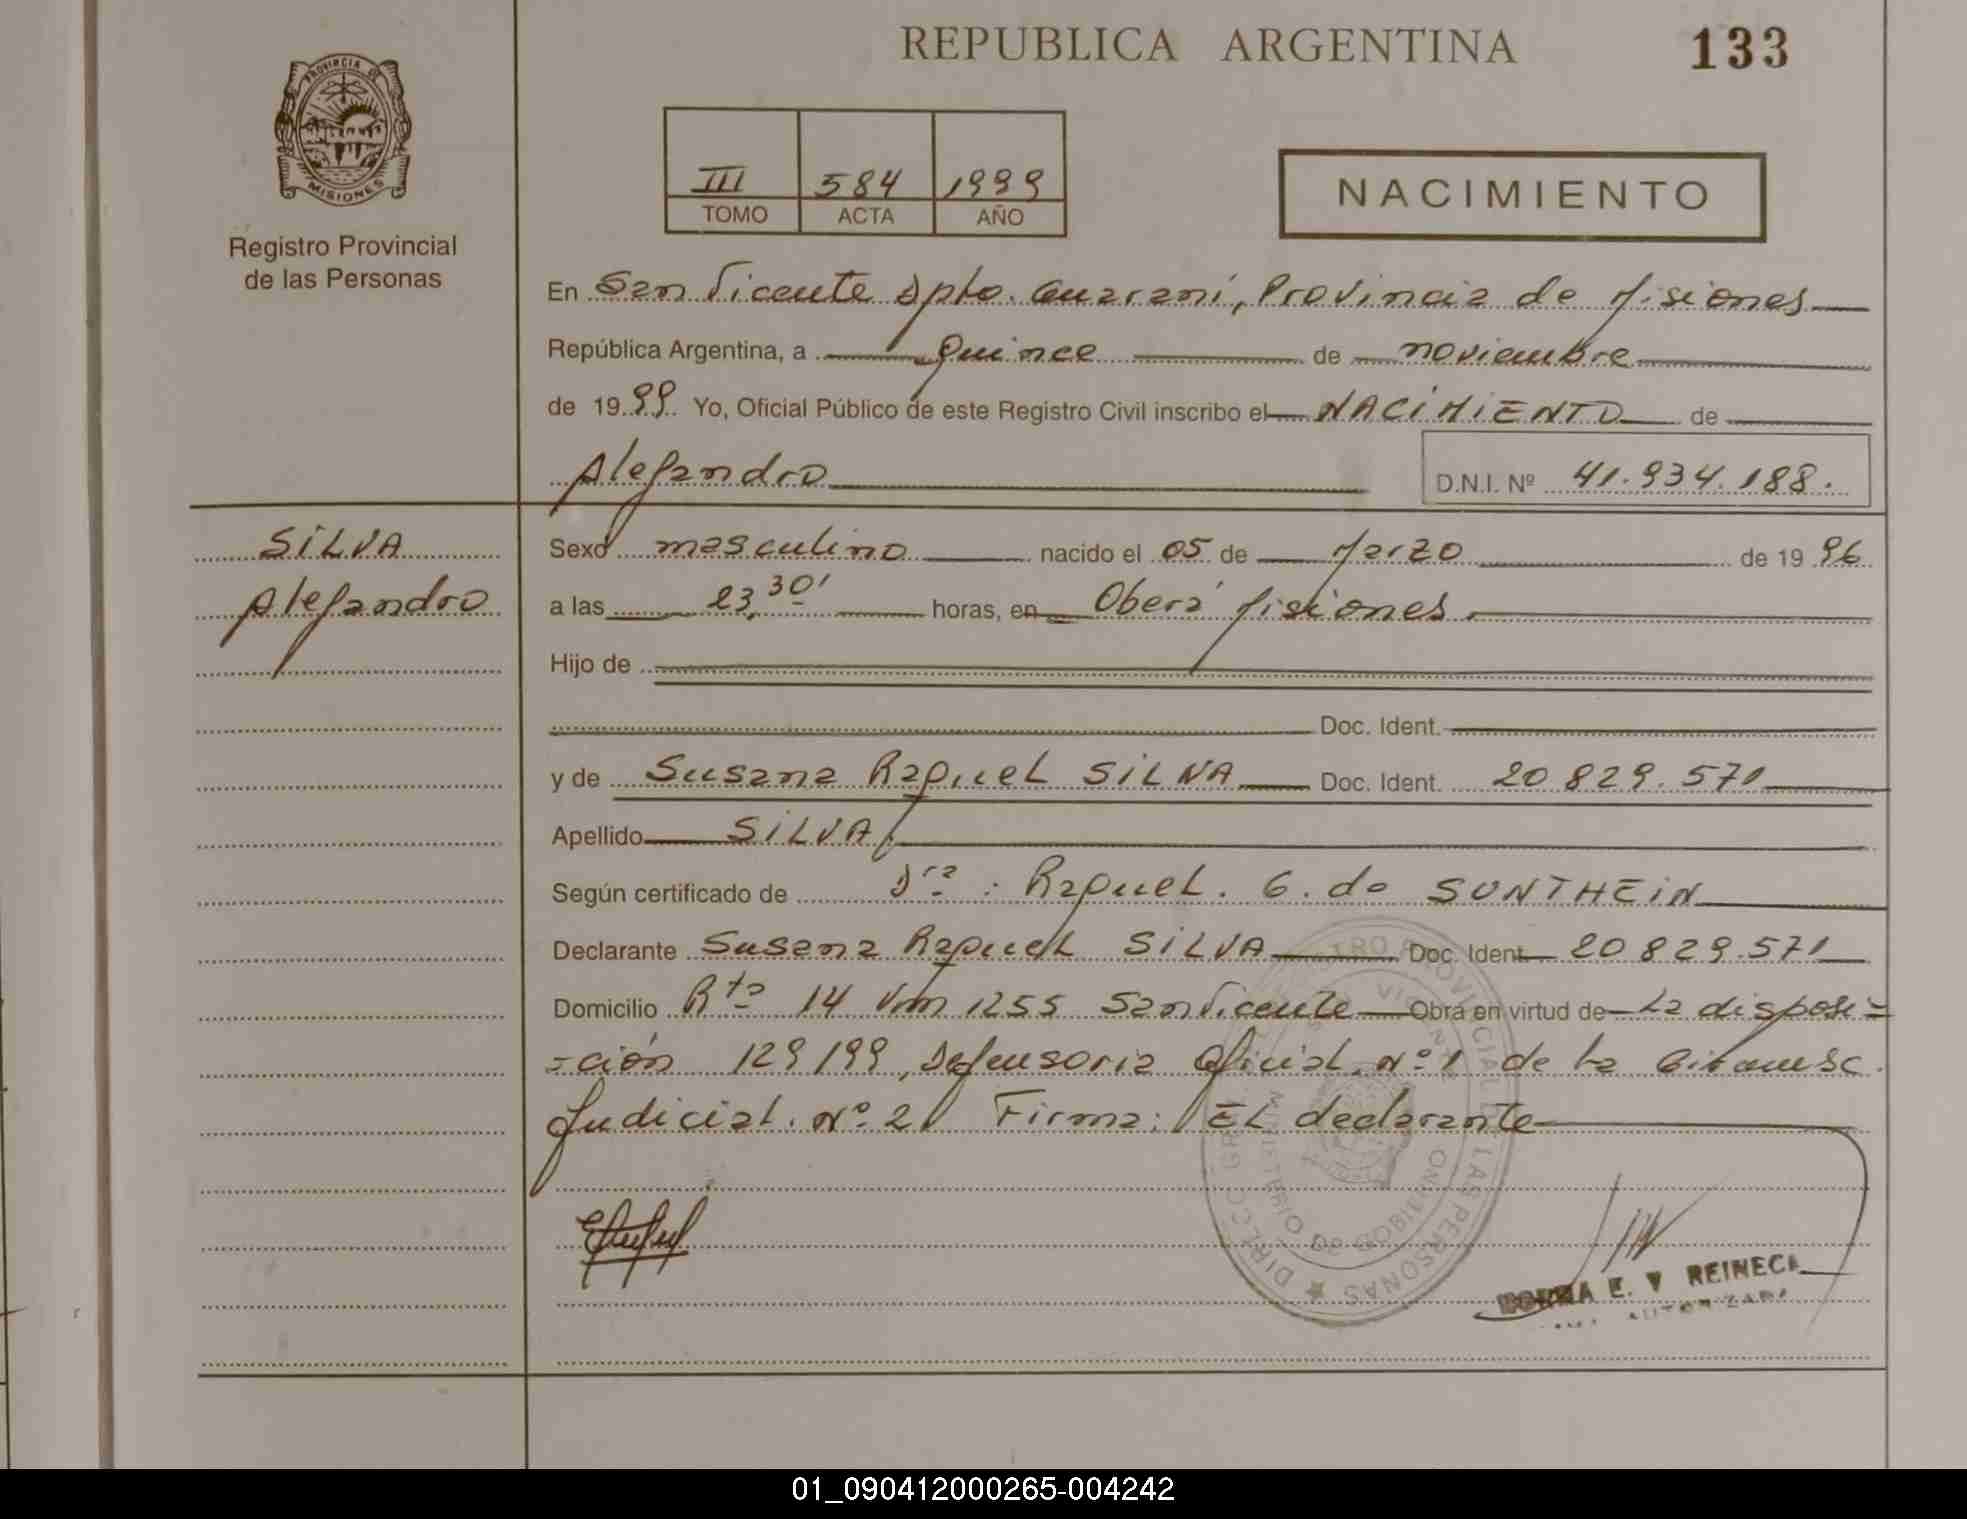 REPUBLICA ARGENTINA
133
PROVINCIA DE
MISIONES
Registro Provincial
de las Personas
III 584 1999
TOMO ACTA AÑO
NACIMIENTO
En San Vicente Dpto. Guaraní, Provincia de Misiones
República Argentina, a Quince de noviembre
de 1999 Yo, Oficial Público de este Registro Civil inscribo el NACIMIENTO de
Alejandro
D.N.I. Nº 41.934.188.
SILVA
Alejandro
Sexo masculino nacido el 05 de Marzo de 1996
a las 23,30' horas, en Oberá Misiones.
Hijo de
Doc. Ident.
y de Susana Raquel SILVA Doc. Ident. 20 829.571
Apellido SILVA
Según certificado de Dra: Raquel. G. de SUNTHEIN
Declarante Susana Raquel SILVA Doc. Ident. 20 829.571
Domicilio Rta 14 Km 1255 San Vicente Obra en virtud de La disposi=
=ción 129/99, Defensoria Oficial. Nº 1 de la Circunsc.
Judicial. Nº 2 Firma: El declarante
DIRECC GRAL REGISTRO PROVINCIAL DE LAS PERSONAS
MINISTERIO DE GOBIERNO
NORMA E. V REINECK
AUTORIZADA
01_090412000265-004242